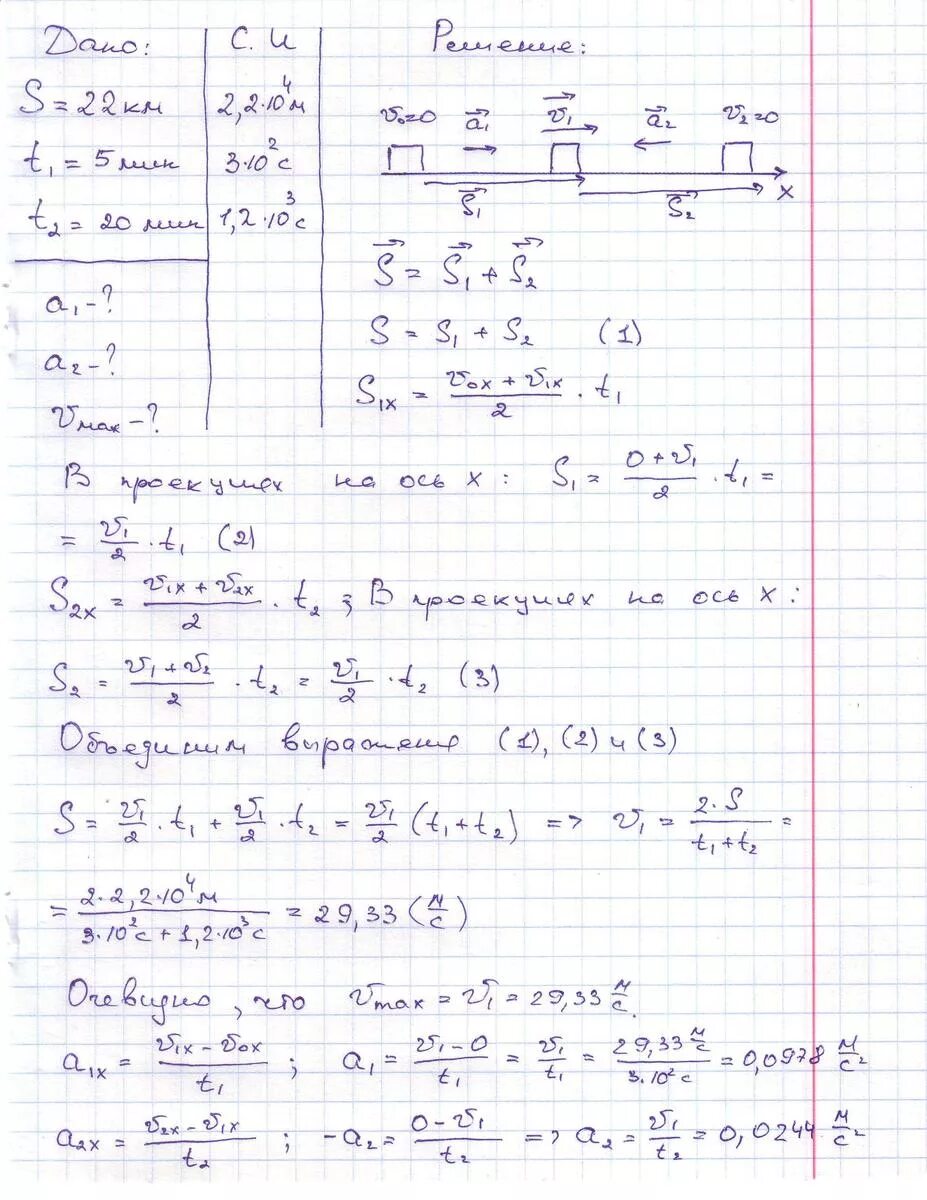 Дано: С.И Решение:
S = 22 км 2,2·10⁴ м
t₁ = 5 мин 3·10² с
t₂ = 20 мин 1,2·10³ с
a₁ - ?
a₂ - ?
v max - ?
v₀=0 a⃗₁ v⃗₁ a⃗₂ v₂=0
S⃗₁ S⃗₂ x
S⃗ = S⃗₁ + S⃗₂
S = S₁ + S₂ (1)
S₁ₓ = (v₀ₓ + v₁ₓ)/2 · t₁
В проекциях на ось x: S₁ = (0 + v₁)/2 · t₁ =
= v₁/2 · t₁ (2)
S₂ₓ = (v₁ₓ + v₂ₓ)/2 · t₂ ; В проекциях на ось x:
S₂ = (v₁ + v₂)/2 · t₂ = v₁/2 · t₂ (3)
Объединим выражения (1), (2) и (3)
S = v₁/2 · t₁ + v₁/2 · t₂ = v₁/2 (t₁ + t₂) => v₁ = 2·S/(t₁ + t₂) =
= 2·2,2·10⁴ м/(3·10² с + 1,2·10³ с) = 29,33 (м/с)
Очевидно, что v max = v₁ = 29,33 м/с.
a₁ₓ = (v₁ₓ - v₀ₓ)/t₁ ; a₁ = (v₁ - 0)/t₁ = v₁/t₁ = 29,33 м/с / 3·10² с = 0,0978 м/с²
a₂ₓ = (v₂ₓ - v₁ₓ)/t₂ ; -a₂ = (0 - v₁)/t₂ => a₂ = v₁/t₂ = 0,0244 м/с²